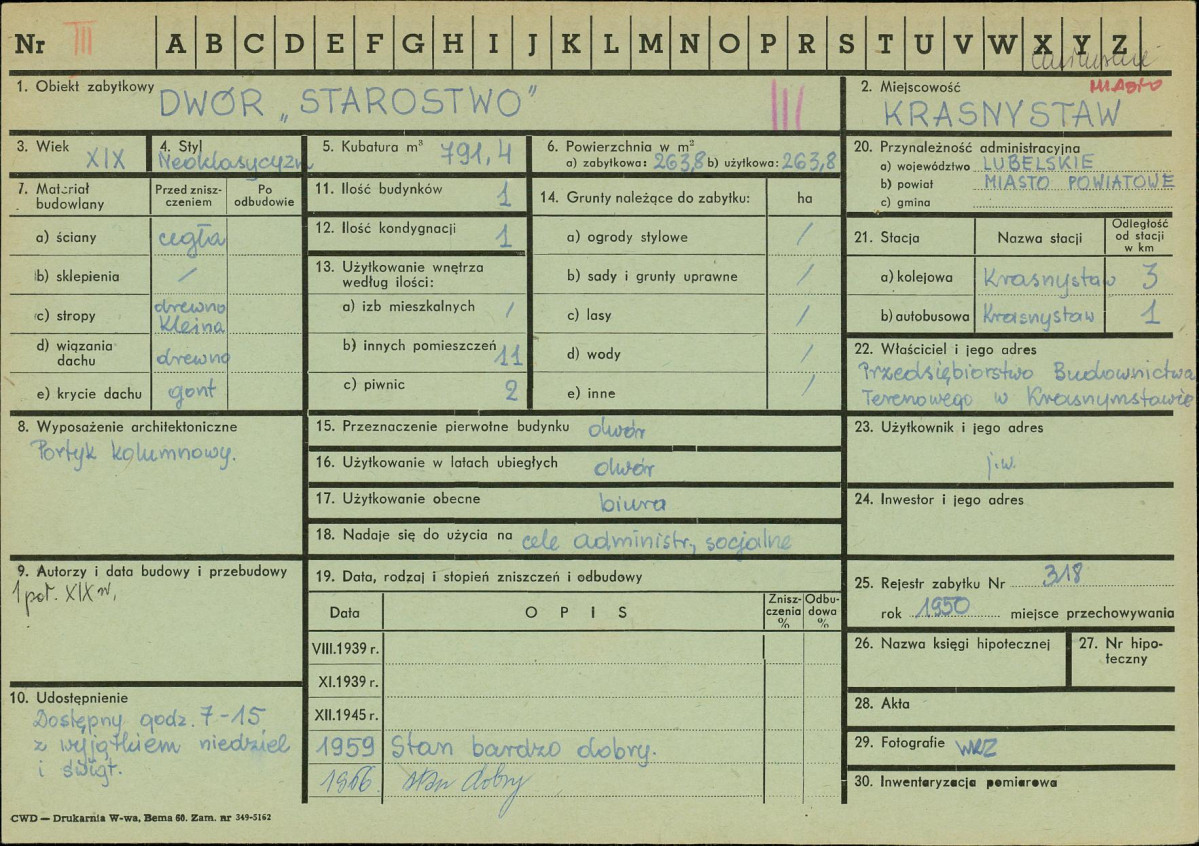 Nr III A B C D E F G H I J K L M N O P R S T U V W X Y Z
1. Obiekt zabytkowy DWÓR „STAROSTWO" III
2. Miejscowość MIASTO
KRASNYSTAW
3. Wiek XIX
4. Styl Neoklasycyzm
5. Kubatura m³ 791,4
6. Powierzchnia w m²
a) zabytkowa: 263,8 b) użytkowa: 263,8
7. Materiał budowlany
Przed zniszczeniem
Po odbudowie
a) ściany cegła
b) sklepienia /
c) stropy drewno
Kleina
d) wiązania
dachu drewno
e) krycie dachu gont
8. Wyposażenie architektoniczne
Portyk kolumnowy.
9. Autorzy i data budowy i przebudowy
1 poł. XIX w.
10. Udostępnienie
Dostępny godz. 7-15
z wyjątkiem niedziel
i świąt.
11. Ilość budynków 1
12. Ilość kondygnacji 1
13. Użytkowanie wnętrza
według ilości:
a) izb mieszkalnych /
b) innych pomieszczeń 11
c) piwnic 2
14. Grunty należące do zabytku: ha
a) ogrody stylowe /
b) sady i grunty uprawne /
c) lasy /
d) wody /
e) inne /
15. Przeznaczenie pierwotne budynku dwór
16. Użytkowanie w latach ubiegłych dwór
17. Użytkowanie obecne biura
18. Nadaje się do użycia na cele administr, socjalne
19. Data, rodzaj i stopień zniszczeń i odbudowy
Data OPIS Zniszczenia % Odbudowa %
VIII.1939 r.
XI.1939 r.
XII.1945 r.
1959 Stan bardzo dobry.
1966. stan dobry
20. Przynależność administracyjna
a) województwo LUBELSKIE
b) powiat MIASTO POWIATOWE
c) gmina
21. Stacja Nazwa stacji Odległość od stacji w km
a) kolejowa Krasnystaw 3
b) autobusowa Krasnystaw 1
22. Właściciel i jego adres
Przedsiębiorstwo Budownictwa
Terenowego w Krasnymstawie
23. Użytkownik i jego adres
j.w.
24. Inwestor i jego adres
25. Rejestr zabytku Nr 318
rok 1950 miejsce przechowywania
26. Nazwa księgi hipotecznej
27. Nr hipoteczny
28. Akta
29. Fotografie WKZ
30. Inwentaryzacja pomiarowa
CWD — Drukarnia W-wa, Bema 60. Zam. nr 349-5162